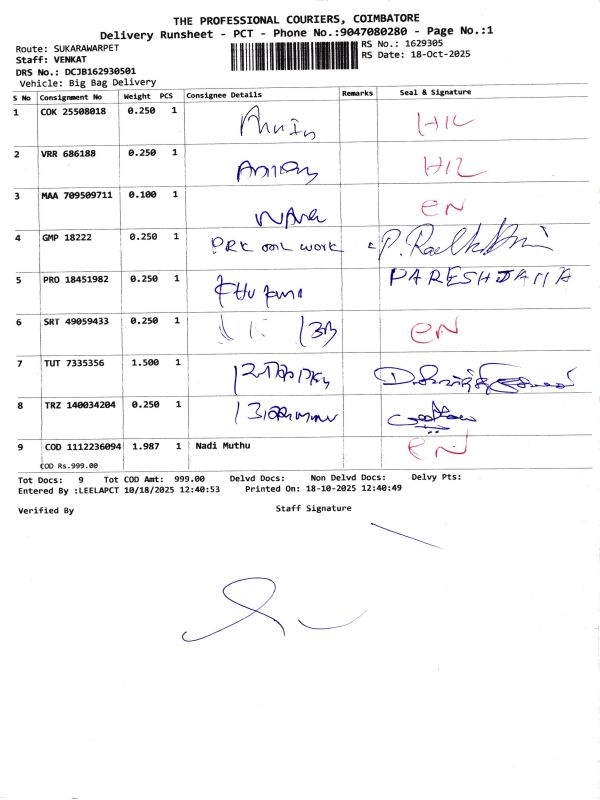 THE PROFESSIONAL COURIERS, COIMBATORE
Delivery Runsheet - PCT - Phone No.:9047080280 - Page No.:1
Route: SUKARAWARPET
RS No.: 1629305
Staff: VENKAT
RS Date: 18-Oct-2025
DRS No.: DCJB162930501
Vehicle: Big Bag Delivery
S No Consignment No Weight PCS Consignee Details Remarks Seal & Signature
1 COK 25508018 0.250 1
2 VRR 686188 0.250 1
3 MAA 709509711 0.100 1 EN
4 GMP 18222 0.250 1 work
5 PRO 18451982 0.250 1 PARESH JANA
6 SRT 49059433 0.250 1 EN
7 TUT 7335356 1.500 1
8 TRZ 140034204 0.250 1
9 COD 1112236094 1.987 1 Nadi Muthu EN
COD Rs.999.00
Tot Docs: 9 Tot COD Amt: 999.00 Delvd Docs: Non Delvd Docs: Delvy Pts:
Entered By :LEELAPCT 10/18/2025 12:40:53 Printed On: 18-10-2025 12:40:49
Verified By Staff Signature